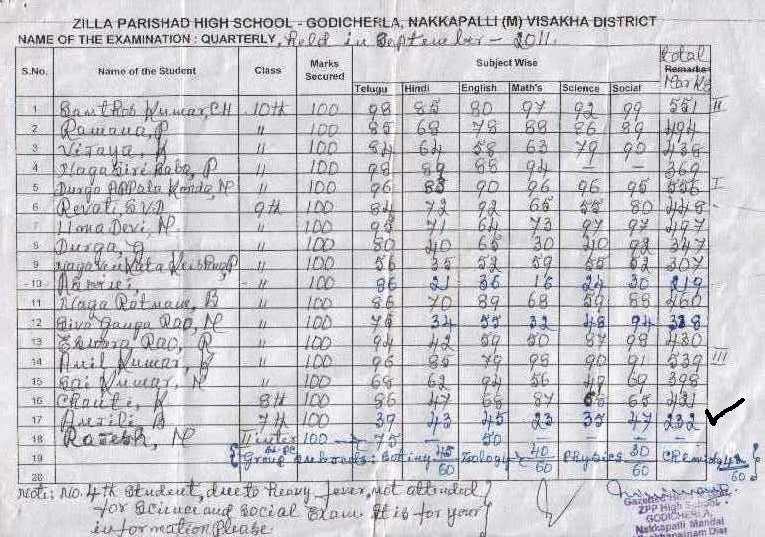 ZILLA PARISHAD HIGH SCHOOL - GODICHERLA, NAKKAPALLI (M) VISAKHA DISTRICT
NAME OF THE EXAMINATION : QUARTERLY, held in September - 2011.
S.No. Name of the Student Class Marks Secured Subject Wise Total Remarks Marks
Telugu Hindi English Math's Science Social
1 Kumar, CH 10th 100 98 85 80 97 92 99 551 II
2 Ramana, P " 100 85 68 78 88 86 89 494
3 Vijaya, " 100 84 64 58 63 79 90 438
4 Nagagiri Babu, P " 100 98 89 88 94 - - 369
5 Durga Appala Konda, N " 100 96 83 90 96 96 95 556 I
6 Revati 9th 100 84 72 92 65 55 80 448
7 Uma Devi, N " 100 95 71 64 73 97 97 497
8 Durga, " 100 80 40 65 30 40 92 347
9 " 100 56 35 52 59 55 52 307
10 " 100 86 21 36 16 24 30 219
11 Naga Ratnam, B " 100 86 70 89 68 59 88 460
12 Siva Ganga Rao, N " 100 75 34 55 32 48 94 338
13 Eswara Rao, R " 100 94 42 59 50 87 98 430
14 Anil Kumar, " 100 96 85 79 98 90 91 539 III
15 Sai Kumar, N " 100 68 62 94 56 49 69 398
16 8th 100 86 47 66 87 65 431
17 Anjali, B 7th 100 39 43 45 23 35 47 232
18 Rajesh, N II inter 100 → 75 - 50 - - -
19 Bi.PC Group subjects: Botiny 45/60 Zoology 40/60 Physics 30/60 /60
20
Note: No. 4th Student, due to heavy fever, not attended
for Science and Social Exam. It is for your
information Please
ZPP High School
GODICHERLA,
Nakkapalli Mandal
Visakhapatnam Dist